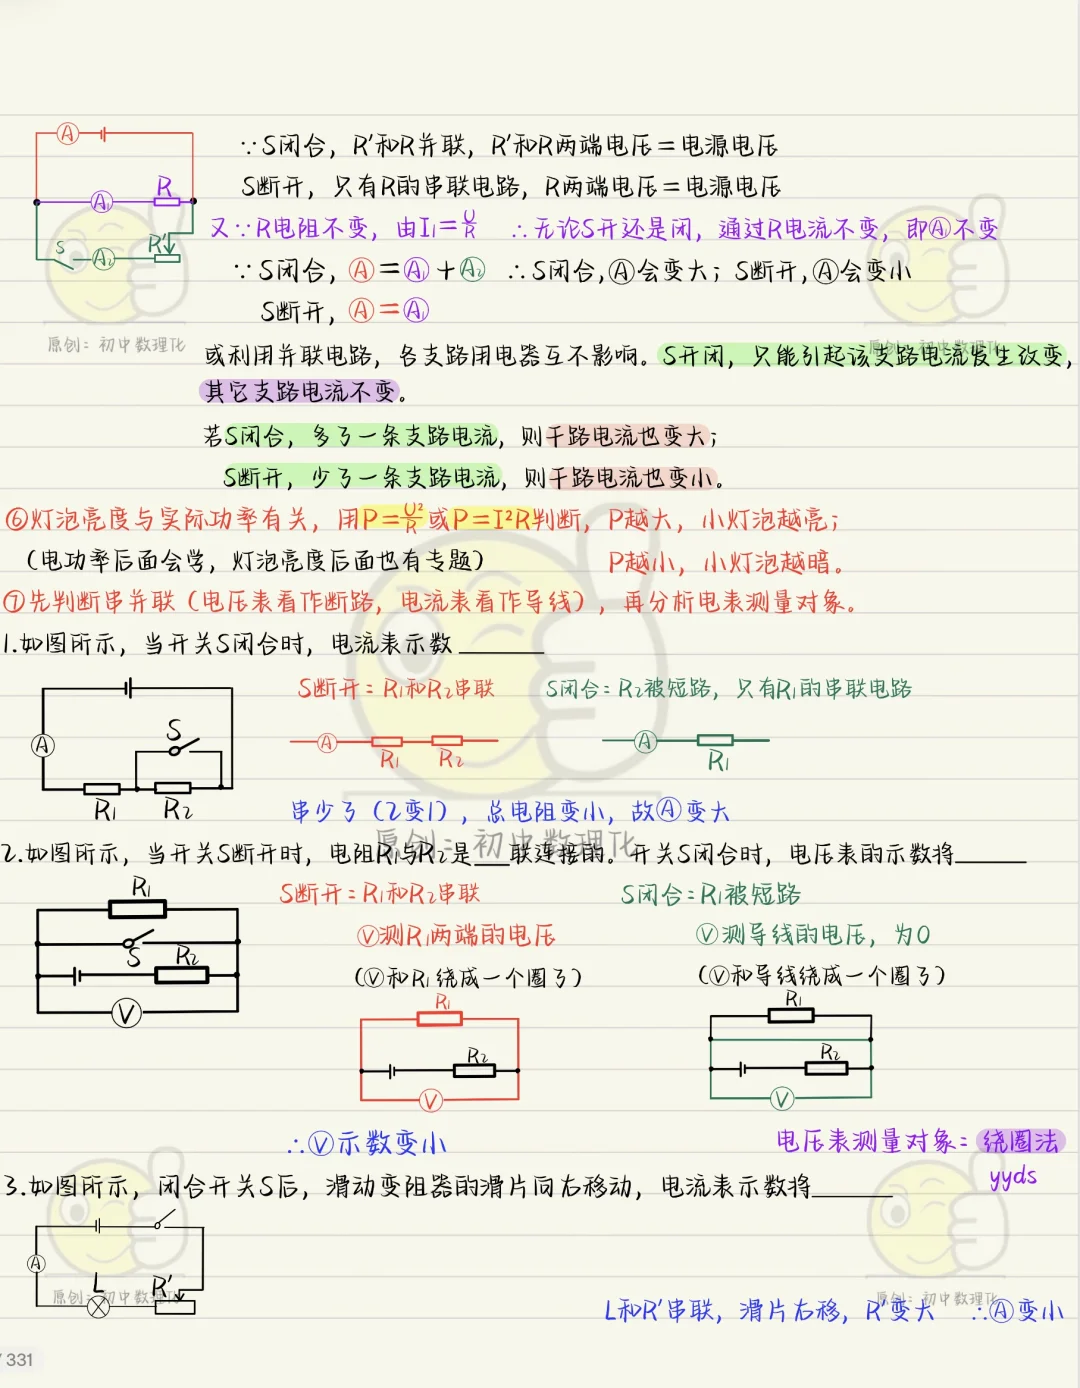 A
∵S闭合，R'和R并联，R'和R两端电压=电源电压
S断开，只有R的串联电路，R两端电压=电源电压
A₁ R
又∵R电阻不变，由I₁=U/R ∴无论S开还是闭，通过R电流不变，即Ⓐ不变
S A₂ R'
∵S闭合，Ⓐ=A₁+A₂ ∴S闭合，Ⓐ会变大；S断开，Ⓐ会变小
S断开，Ⓐ=A₁
原创：初中数理化
原创：初中数理化
或利用并联电路，各支路用电器互不影响。S开闭，只能引起该支路电流发生改变，
其它支路电流不变。
若S闭合，多了一条支路电流，则干路电流也变大；
S断开，少了一条支路电流，则干路电流也变小。
⑥灯泡亮度与实际功率有关，用P=U²/R或P=I²R判断，P越大，小灯泡越亮；
（电功率后面会学，灯泡亮度后面也有专题） P越小，小灯泡越暗。
⑦先判断串并联（电压表看作断路，电流表看作导线），再分析电表测量对象。
1.如图所示，当开关S闭合时，电流表示数______
S断开：R₁和R₂串联 S闭合：R₂被短路，只有R₁的串联电路
A S R₁ R₂
A R₁ R₂
A R₁
串少了（2变1），总电阻变小，故Ⓐ变大
原创：初中数理化
2.如图所示，当开关S断开时，电阻R₁与R₂是___联连接的。开关S闭合时，电压表的示数将_____
R₁ S R₂ V
S断开：R₁和R₂串联 S闭合：R₁被短路
Ⓥ测R₁两端的电压 Ⓥ测导线的电压，为0
（Ⓥ和R₁绕成一个圈了） （Ⓥ和导线绕成一个圈了）
R₁ R₂ V
R₁ R₂ V
∴Ⓥ示数变小 电压表测量对象：绕圈法
yyds
3.如图所示，闭合开关S后，滑动变阻器的滑片向右移动，电流表示数将______
A L R'
原创：初中数理化
原创：初中数理化
L和R'串联，滑片右移，R'变大 ∴Ⓐ变小
/ 331